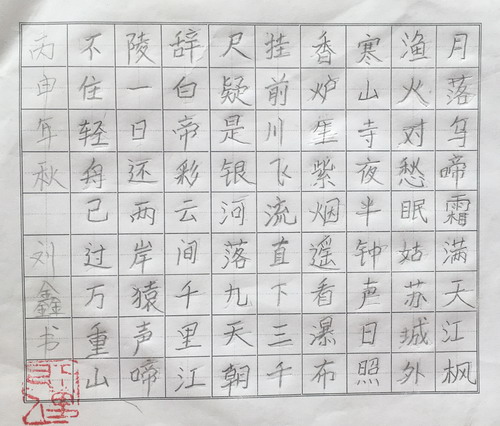 月落乌啼霜满天江枫
渔火对愁眠姑苏城外
寒山寺夜半钟声日照
香炉生紫烟遥看瀑布
挂前川飞流直下三千
尺疑是银河落九天朝
辞白帝彩云间千里江
陵一日还两岸猿声啼
不住轻舟已过万重山
丙申年秋 刘鑫书